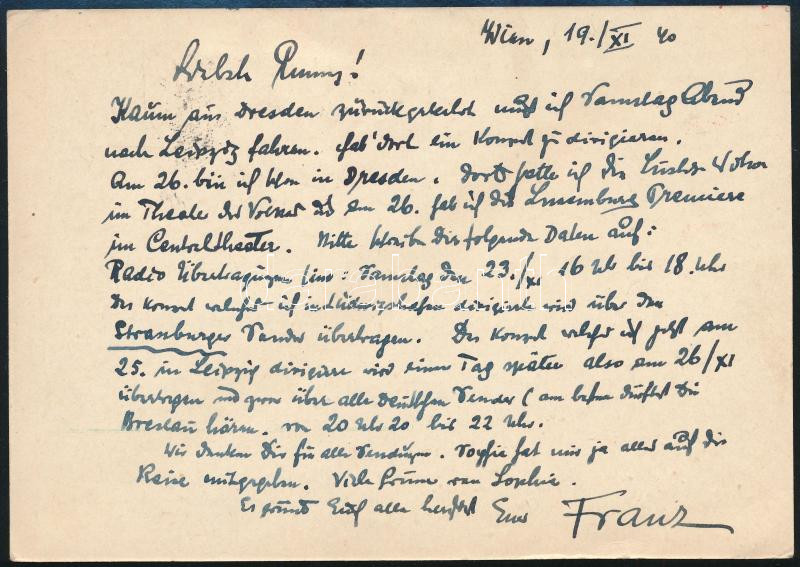 Wien, 19./XI 40
Kaum aus Dresden zurückgekehrt muß ich Samstag Abend
nach Leipzig fahren. Hab' dort ein Konzert zu dirigieren.
Am 26. bin ich schon in Dresden. Dort hatte ich die Lustige Witwe
im Theater des Volkes und am 26. hab ich die Luxemburg Premiere
im Centraltheater. Bitte schreibe Dir folgende Daten auf:
Radio Übertragungen sind: Samstag den 23./XI 16 Uhr bis 18. Uhr
das Konzert welches ich in Ludwigshafen dirigierte wird über den
Strassburger Sender übertragen. Das Konzert welches ich jetzt am
25. in Leipzig dirigiere wird einen Tag später also am 26/XI
übertragen und zwar über alle Deutschen Sender (am besten dürftest Du
Breslau hören. von 20 Uhr 20 bis 22 Uhr.
Wir danken Dir für alle Sendungen. Sophie hat mir ja alles auf die
Reise mitgegeben. Viele Grüße von Sophie.
Es grüßt Euch alle herzlichst Euer Franz